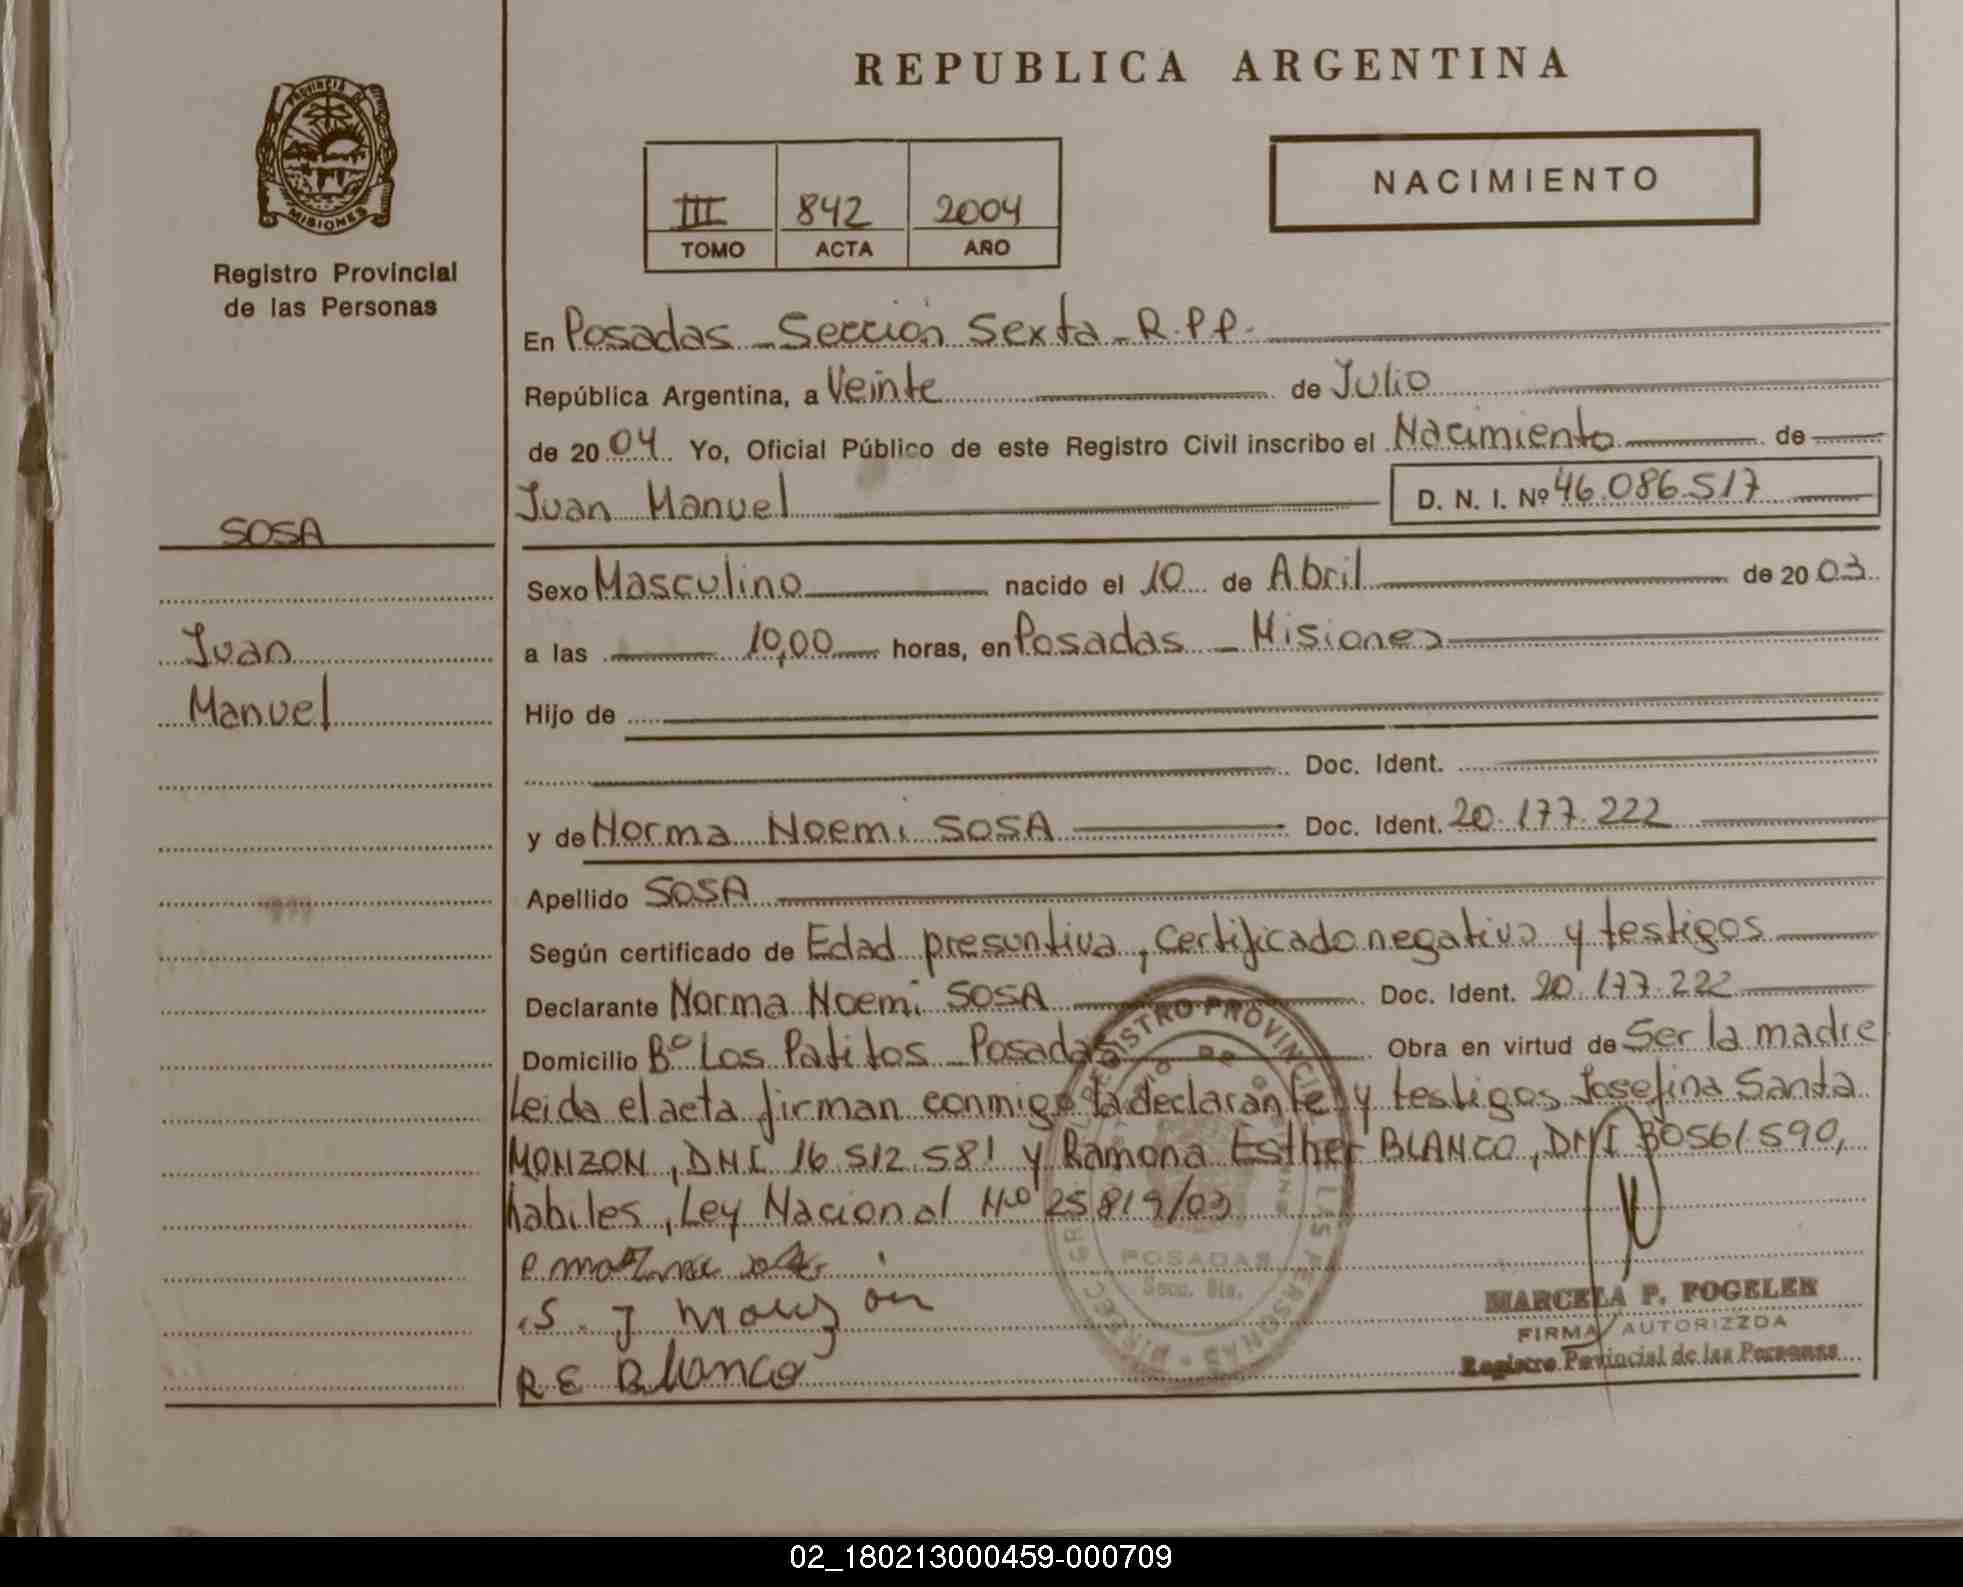 REPUBLICA ARGENTINA
PROVINCIA DE
MISIONES
Registro Provincial
de las Personas
III 842 2004
TOMO ACTA AÑO
NACIMIENTO
En Posadas - Sección Sexta - R.P.P.
República Argentina, a Veinte de Julio
de 2004 Yo, Oficial Público de este Registro Civil inscribo el Nacimiento de
Juan Manuel D. N. I. Nº 46.086.517
SOSA
Juan
Manuel
Sexo Masculino nacido el 10 de Abril de 2003
a las 10,00 horas, en Posadas - Misiones
Hijo de
Doc. Ident.
y de Norma Noemi SOSA Doc. Ident. 20.177.222
Apellido SOSA
Según certificado de Edad presuntiva, certificado negativo y testigos
Declarante Norma Noemi SOSA Doc. Ident. 20.177.222
Domicilio Bº Los Patitos - Posadas Obra en virtud de Ser la madre
Leida el acta firman conmigo la declarante y testigos Josefina Santa
MONZON, DNI 16.512.581 y Ramona Esther BLANCO, DNI 30561.590,
habiles, Ley Nacional Nº 25819/03
S. J Monzon
R E Blanco
POSADAS
Secc. 6ta.
MARCELA P. FOGELER
FIRMA AUTORIZZDA
Registro Povincial de las Personas
02_180213000459-000709